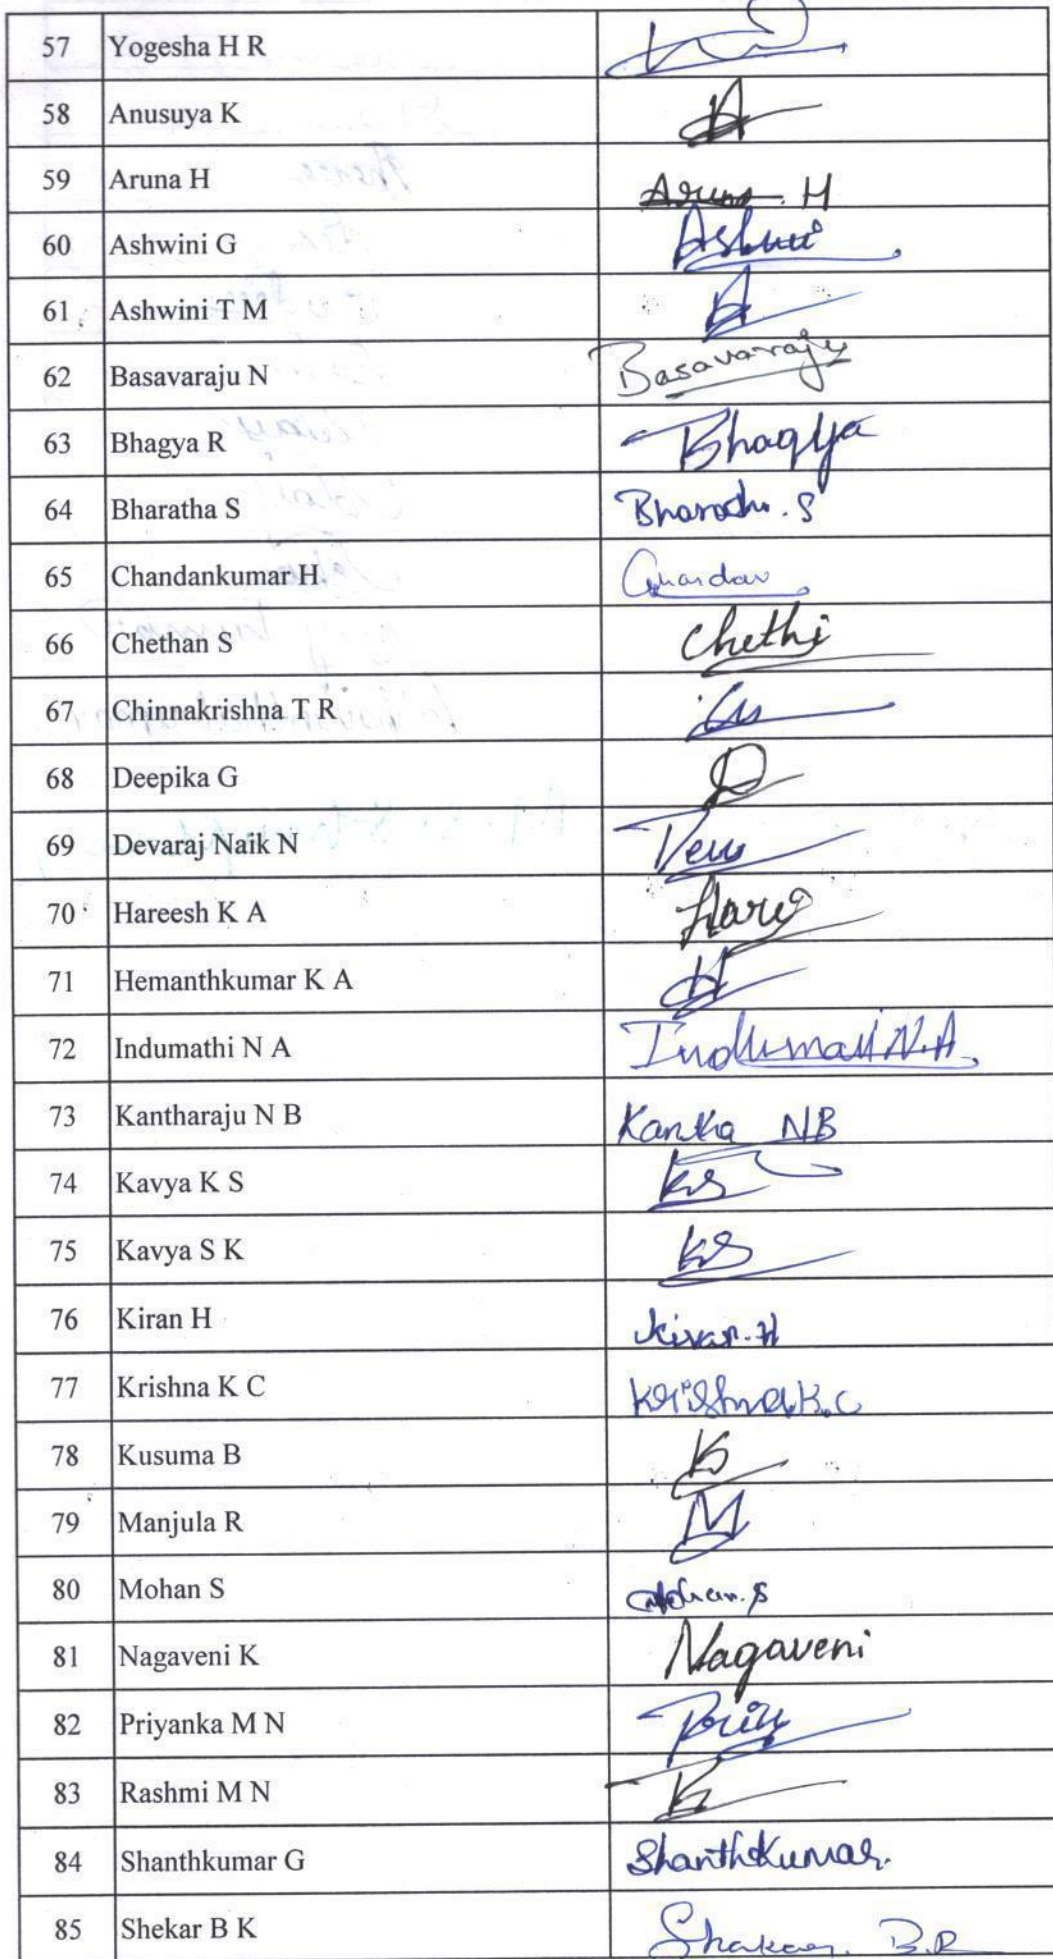 57 Yogesha H R
58 Anusuya K
59 Aruna H Aruna. H
60 Ashwini G
61 Ashwini T M
62 Basavaraju N Basavaraju
63 Bhagya R Bhagya
64 Bharatha S
65 Chandankumar H Chandan
66 Chethan S Chethi
67 Chinnakrishna T R
68 Deepika G D
69 Devaraj Naik N
70 Hareesh K A
71 Hemanthkumar K A H
72 Indumathi N A N.A.
73 Kantharaju N B Kantha NB
74 Kavya K S KS
75 Kavya S K KS
76 Kiran H Kiran. H
77 Krishna K C Krishna K.C
78 Kusuma B
79 Manjula R M
80 Mohan S Mohan. S
81 Nagaveni K Nagaveni
82 Priyanka M N
83 Rashmi M N
84 Shanthkumar G Shanthkumar.
85 Shekar B K